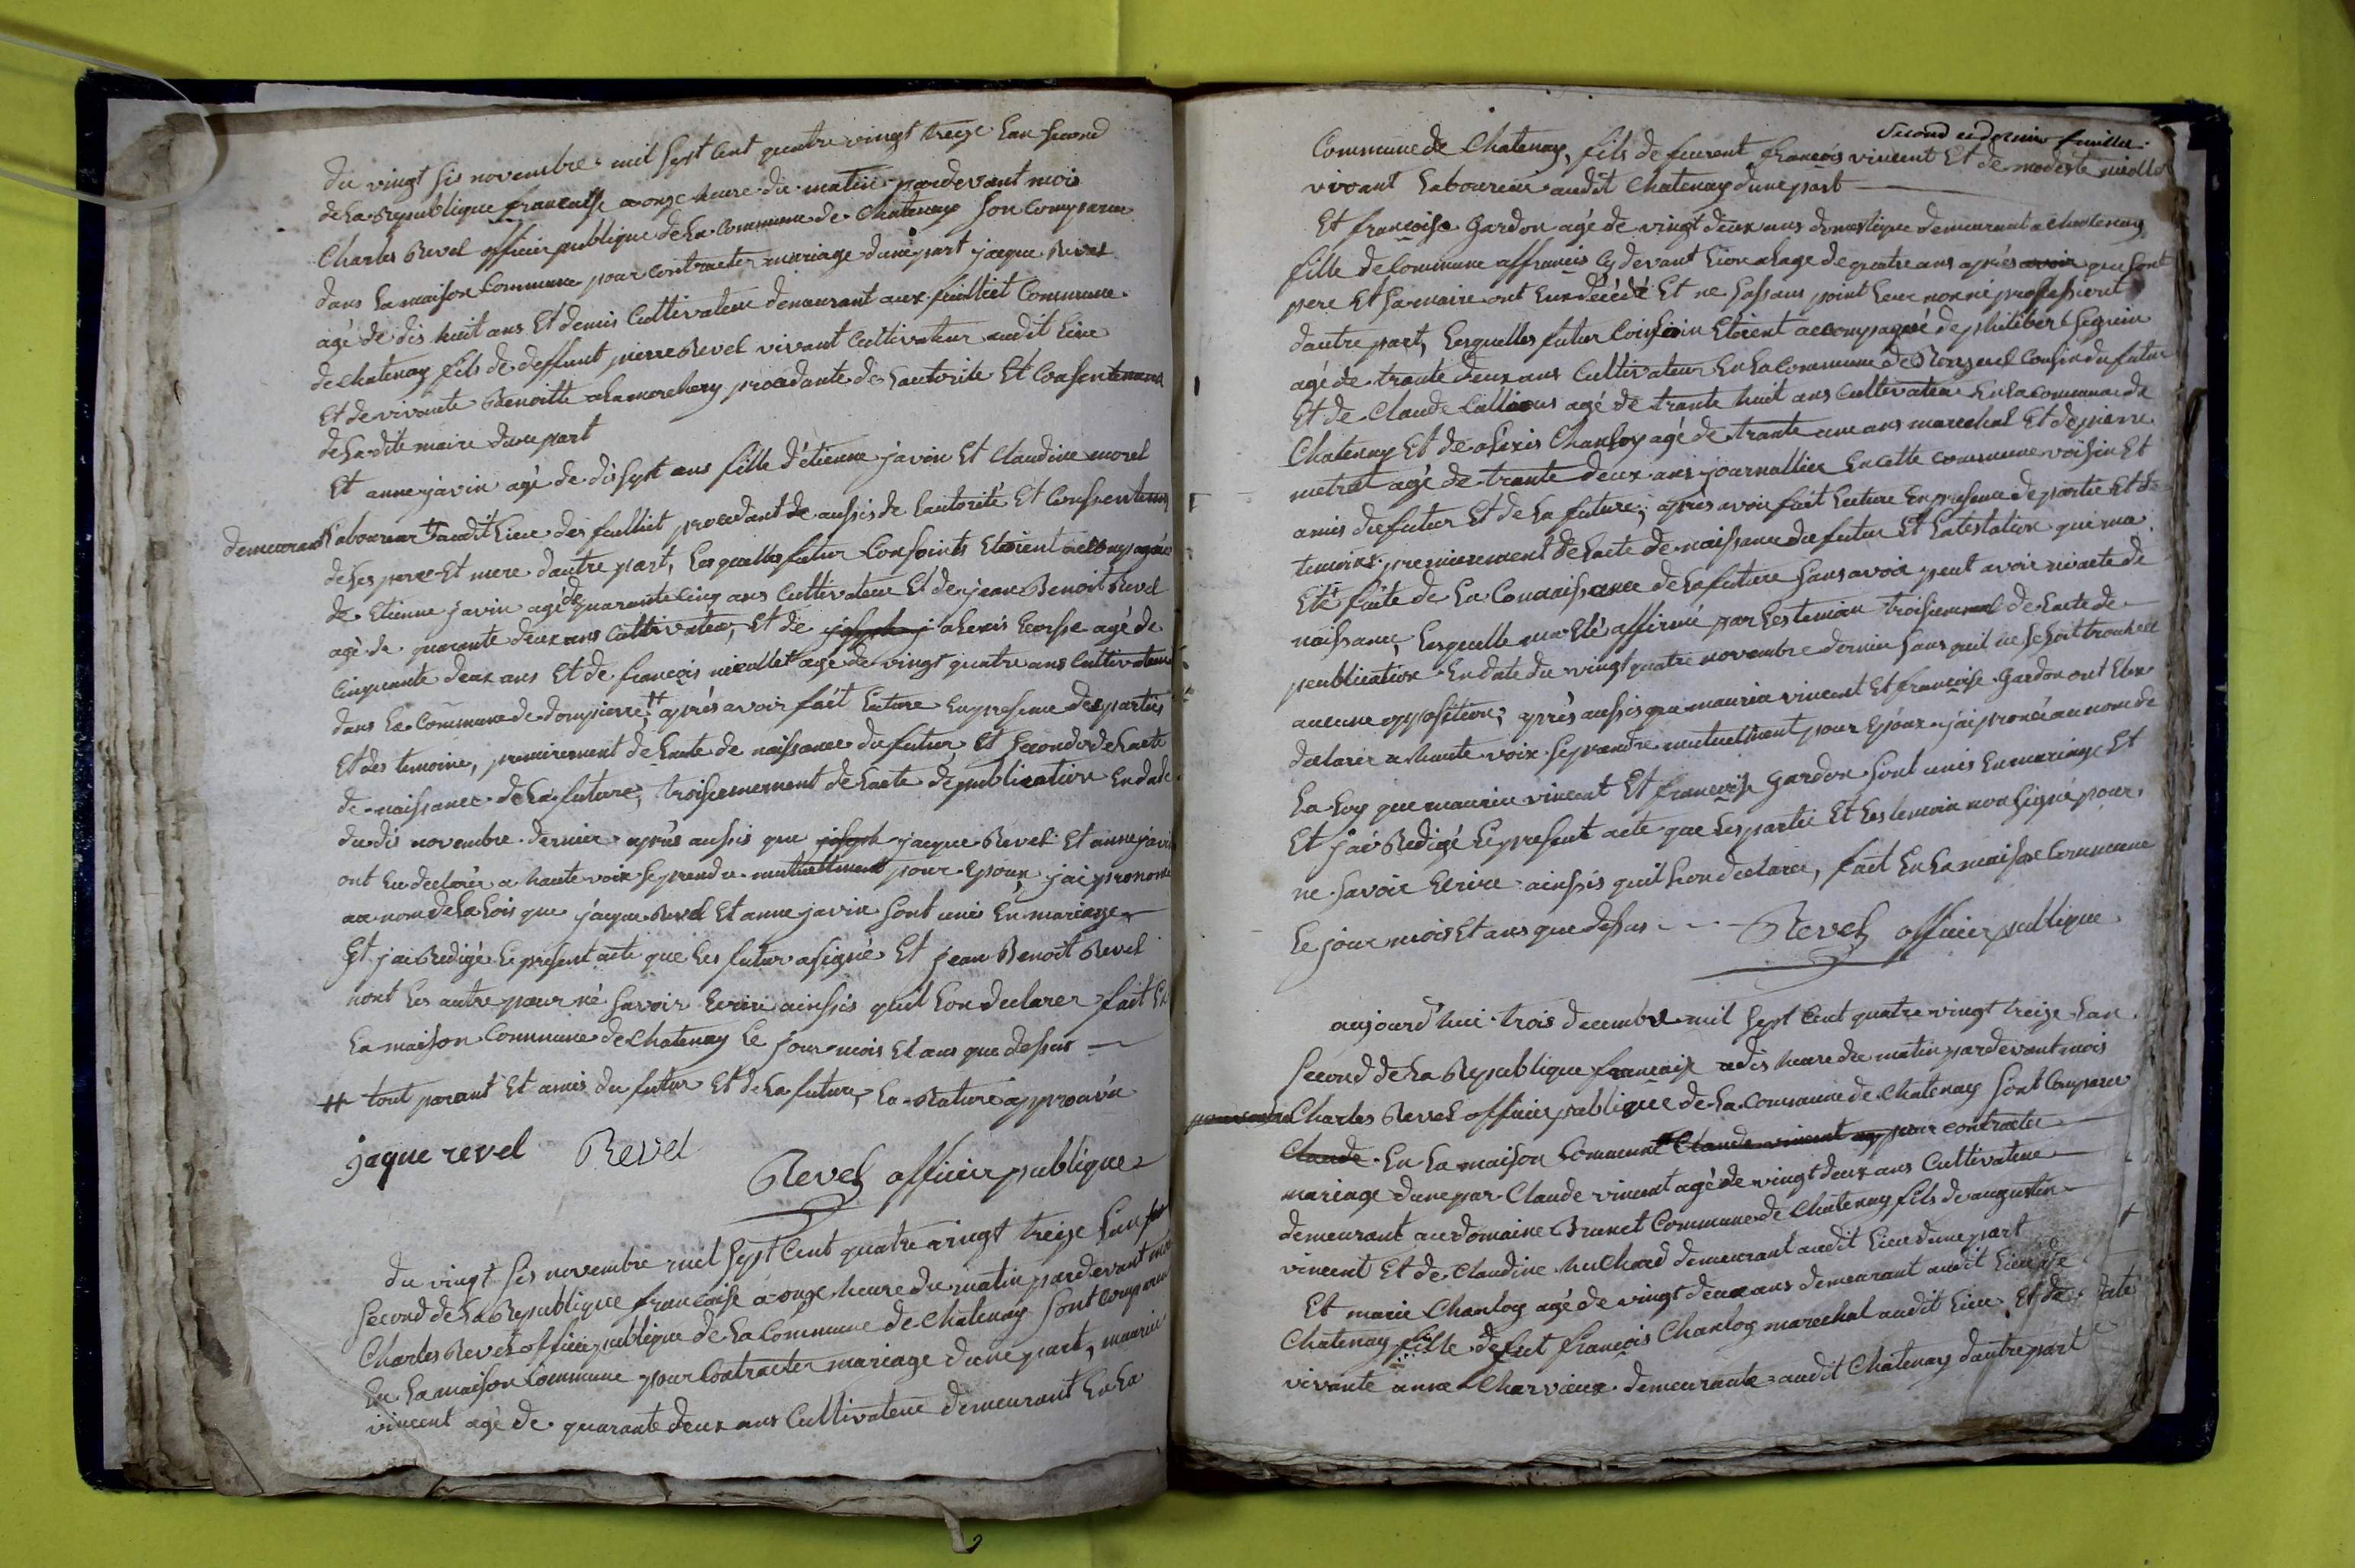 du vingt sis novembre mil sept cent quatre vingt treize lan second
de la republique francaise a onze heure du matin pardevant mois
Charles Revel officier publique de la commune de Chatenay son comparu
dans la maison commune pour contracter mariage dune part jaque Revel
agé de dis huit ans et demis cultivateur demeurant aux fuilliet commune
de chatenay fils de deffunt pierre Revel vivant cultivateur audit lieu
et de vivante Benoitte procedante de lautorite et consentement
de la dite maire dune part
Et anne javin agé de dis sept ans fille d'étienne javin et Claudine morel
demeurant laboureur # audit lieu des fuilliet procedant de aussis de lautorité et consentement
de ses pere et mere dautre part, lesquelles futur consoints etoient accompagnée
de Etienne javin agé de quarante cinq ans cultivateur et de jean Benoit Revel
agé de quarante deux ans cultivateur, et de joseph j alexis ecorsse agé de
cinquante deux ans et de françois nicollet agé de vingt quatre ans cultivateur
dans la commune de dompierre # après avoir fait lecture en presence des parties
et des temoins, premierement de lacte de naissance du futur et secondo de lacte
de naissance de la future, troisiemement de lacte de publication en date
du dis novembre dernier après aussis que joseph jaque Revel et anne javin
ont eu declarér a haute voix se prendre mutuellment pour epoux, jai prononcé
au nom de la lois que jaque Revel et anne javin sont unis en mariage
Et jai Redigé le present acte que les futur a signé et jean Benoit Revel
nont les autre pour né savoir ecrire ainssis quil lon declarer fait en
la maison commune de Chatenay le jour mois et ans que dessus
# tout parant et amis du futur et de la future, la rature approuvé
jaque revel Revel
Revel officier publique
du vingt sis novembre mil sept cent quatre vingt treize lan
second de la Republique francaise à onze heure du matin pardevant moi
Charles Revel officier publique de la commune de Chatenay sont comparu
en la maison commune pour contracter mariage dune part, maurice
vincent agé de quarante deux ans cultivateur demeurant en la
second et dernier feuillet
Commune de Chatenay, fils de françois vincent et de modeste
vivant laboureur audit Chatenay dune part
Et françoise Gardon agé de vingt deux ans domestique demeurant a Chatenay
fille de commune affrancis cy devant Lion a lage de quatre ans après avoir que sont
pere et sa maire ont eux décédé et ne sassans point leur nom ni professiont
dautre part, lesquelles futur coinsoin etoient accompagné de philibert Seguin
agé de trante deux ans cultivateur en la commune de cousin du futur
et de Claude agé de trante huit ans cultivateur en la commune de
Chatenay et de alexis Chanloy agé de trante une ans marechal et de pierre
metrat agé de trante deux ans journallier en cette commune voisin et
amis du futur et de la future, après avoir fait lecture en presence de partie et de
temoins premierement de lacte de naissance du futur et latestation qui ma
eté faite de la connaissance de la future sans avoir peut avoir ni acte de
naissance, lesquelle ma eté affirmé par les temoin troisiemment de lacte de
publication en date du vingt quatre novembre dernier sans quil ne se soit trouvée
aucune opposition; après aussis que maurice vincent et françoise Gardon ont eux
declarer a haute voix se prendre mutuelment pour epoux jai pronncé au nom de
la loy que maurice vincent et françoise Gardon sont unis en mariage et
et jai Redigé le present acte que les partie et les temoin non signé pour
ne savoir ecrire ainssis quil lon declaree, fait en la maison commune
le jour mois et ans que dessus Revel officier publique
aujourd'hui trois decembre mil sept cent quatre vingt treize lan
second de la Republique française a dis heure du matin pardevant mois
Charles Revel officier publique de la commune de Chatenay sont comparu
Claude en la maison commune Claude vincent pour contracter
mariage dune par Claude vincent agé de vingt deux ans cultivateur
demeurant au domaine Brunet commune de Chatenay fils de augustin
vincent et de Claudine huchard demeurant audit lieu dune part
Et marie Chanloy agé de vingt deux ans demeurant audit lieu de
Chatenay fille de fut françois Chanloy marechal audit lieu et de
vivante anne Charvieux demeurante audit Chatenay dautre part